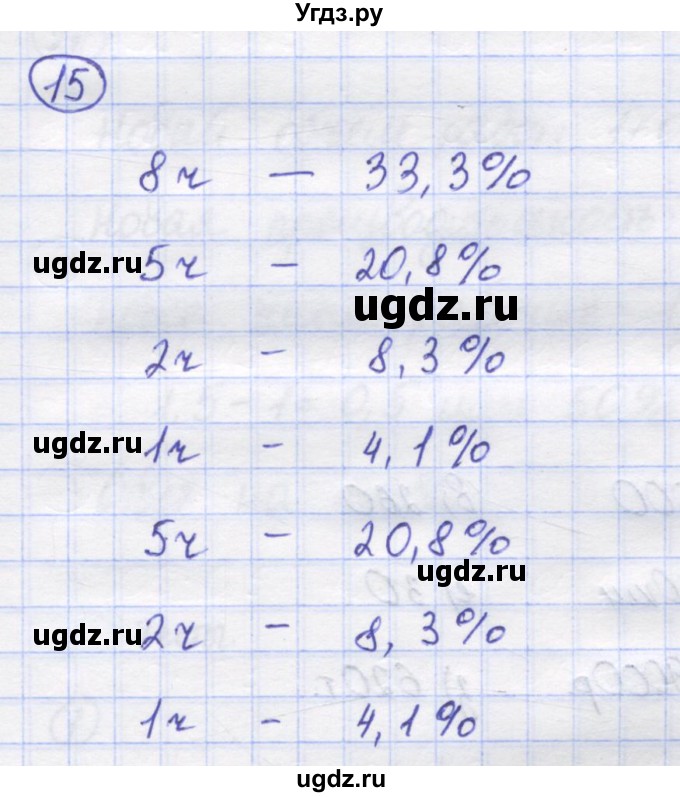 Угдз.ру
15
8ч — 33,3%
ugdz.ru 5ч - 20,8%
ugdz.ru
2ч - 8,3%
ugdz.ru 1ч - 4,1%
5ч - 20,8%
ugdz.ru
ugdz.ru 2ч - 8,3%
1ч - 4,1%
ugdz.ru